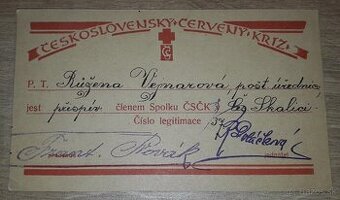 ČESKOSLOVENSKÝ ČERVENÝ KŘÍŽ
P. T. Růžena Vejnarová, pošt. úřednice
jest přespěv. členem Spolku ČSČK Skalici
Číslo legitimace 37
Frant. Novák